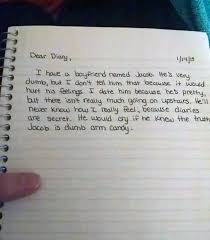 Dear Diary,
1/14/15
I have a boyfriend named Jacob. He's very
dumb, but I don't tell him that because it would
hurt his feelings. I date him because he's pretty,
but there isn't really much going on upstairs. He'll
never know how I really feel, because diaries
are secret. He would cry if he knew the truth
Jacob is dumb arm candy.